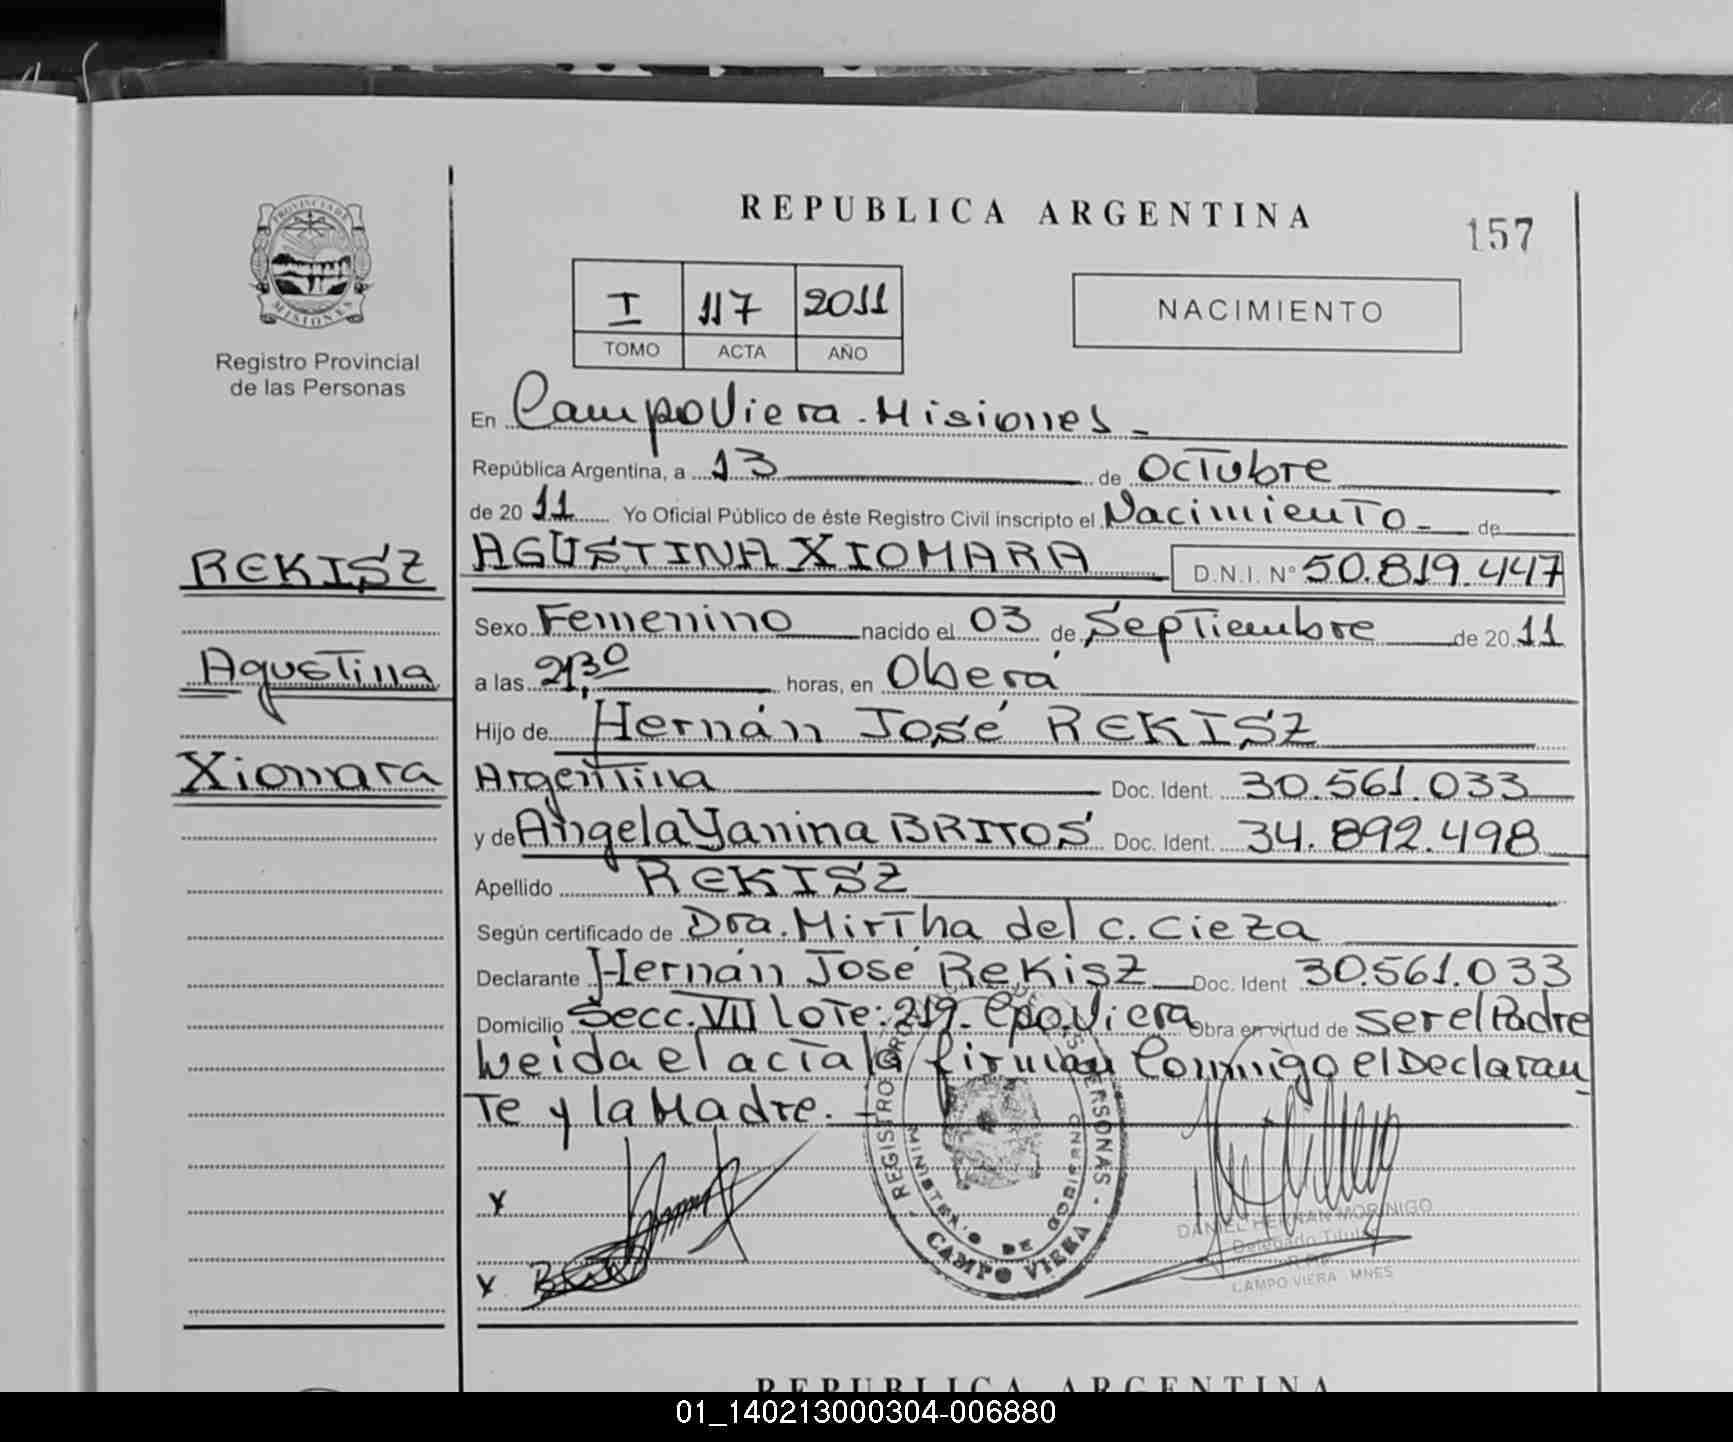 REPUBLICA ARGENTINA
157
PROVINCIA DE
MISIONES
Registro Provincial
de las Personas
I 117 2011
TOMO ACTA AÑO
NACIMIENTO
En Campo Viera - Misiones -
República Argentina, a 13 de Octubre
de 20 11 Yo Oficial Público de éste Registro Civil inscripto el Nacimiento - de
REKISZ
Agustina
Xiomara
AGUSTINA XIOMARA D.N.I. N° 50.819.447
Sexo Femenino nacido el 03 de Septiembre de 20 11
a las 21,30 horas, en Oberá
Hijo de Hernán José REKISZ
Argentina Doc. Ident. 30.561.033
y de Angela Yanina BRITOS Doc. Ident. 34.892.498
Apellido REKISZ
Según certificado de Dra. Mirtha del C. Cieza
Declarante Hernán José Rekisz Doc. Ident 30.561.033
Domicilio Secc. VII Lote: 219. Cpo. Viera Obra en virtud de ser el Padre
Leida el acta la firman Conmigo el Declaran
te y la Madre. -
x
x
REGISTRO PERSONAS -
MINISTERIO DE GOBIERNO
CAMPO VIERA
DANIEL HERNAN MORINIGO
Delegado Titular
CAMPO VIERA MNES
REPUBLICA ARGENTINA
01_140213000304-006880